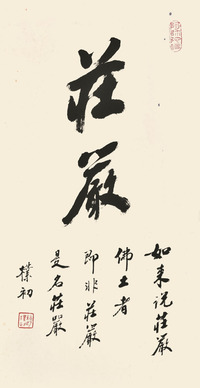 莊嚴
如来说莊嚴
佛土者
即非莊嚴
是名莊嚴
樸初